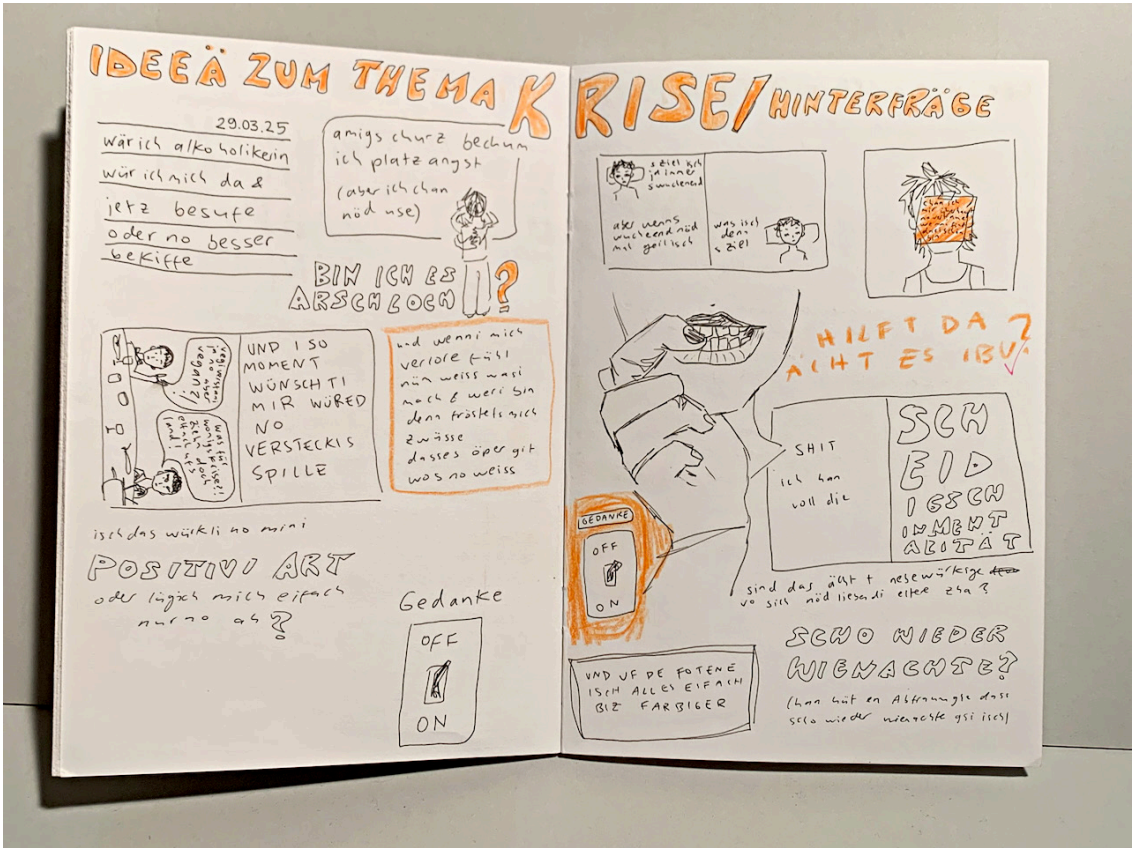 IDEEÄ ZUM THEMA KRISE/HINTERFRÄGE
29.03.25
wär ich alkoholikerin
wür ich mich da &
jetz besufe
oder no besser
bekiffe
amigs churz bechum
ich platzangst
(aber ich chan
nöd use)
BIN ICH ES
ARSCHLOCH ?
vegi wotsch
in no aber
vegan?!
was für
wonigskrise?!
ziehn doch
eifach ufs
land!
UND I SO
MOMENT
WÜNSCHTI
MIR WÜRED
NO
VERSTECKIS
SPILLE
und wenni mich
verlore fühl
nüm weiss wasi
mach & weri bin
denn tröstets mich
zwüsse
dasses öper git
wos no weiss
isch das würkli no mini
POSITIVI ART
oder lügich mich eifach
nur no ah ?
Gedanke
OFF
ON
s ziel isch
immer
s wuchenend
aber wenns
wuchenend nöd
mal geil isch
was isch
denn
s ziel
HILFT DA
ÄCHT ES IBU?
SHIT
ich han
voll die
SCH
EID
IGSCH
INMENT
ALITÄT
GEDANKE
OFF
ON
sind das ächt
vo sich nöd liebendi eltere zha ?
UND UF DE FOTENE
ISCH ALLES EIFACH
BIZ FARBIGER
SCHO WIEDER
WIENACHTE?
(han hüt en Albtraum gha dass
scho wieder wienachte gsi isch)